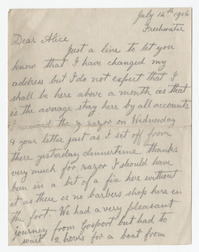 July 14th 1916
Freshwater
Dear Alice
Just a line to let you
know that I have changed my
address but I do not expect that I
shall be here above a month as that
is the average stay here by all accounts
I received the razor on Wednesday
& your letter just as I set off from
there yesterday dinnertime thanks
very much for razor I should have
been in a bit of a fix here without
it as there are no barbers shop here in
the fort. We had a very pleasant
journey from Gosport but had to
wait 2 hours for a boat from